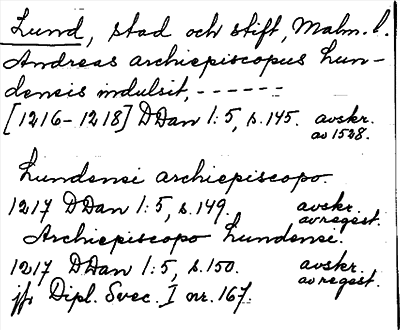 Lund, stad och stift, Malm. l.
Andreas archiepiscopus Lun-
densis indulsit, ------
[1216-1218] DDan 1:5, s. 145. avskr.
av 1528.
Lundensi archiepiscopo.
1217 DDan 1:5, s. 149. avskr.
av regest.
Archiepiscopo Lundensi.
1217 DDan 1:5, s. 150. avskr.
av regest.
jfr Dipl. Svec. I nr. 167.